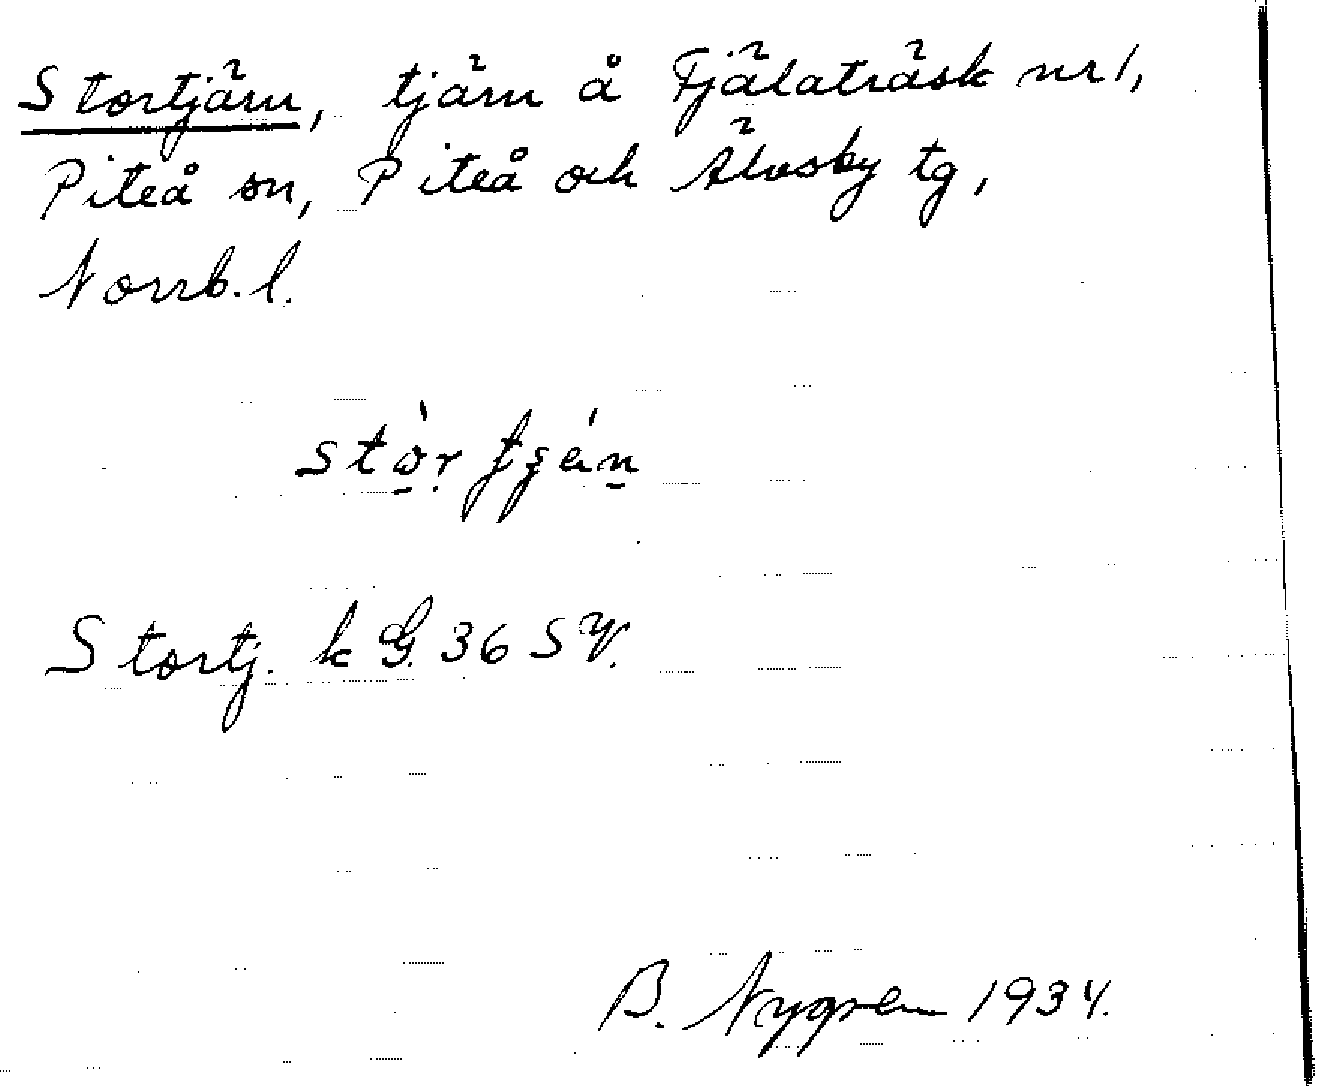 Stortjärn, tjärn å Fjälaträsk nr 1,
Piteå sn, Piteå och Älvsby tg,
Norrb. l.
Stortj. k G. 36 SV.
B. Nygren 1934.